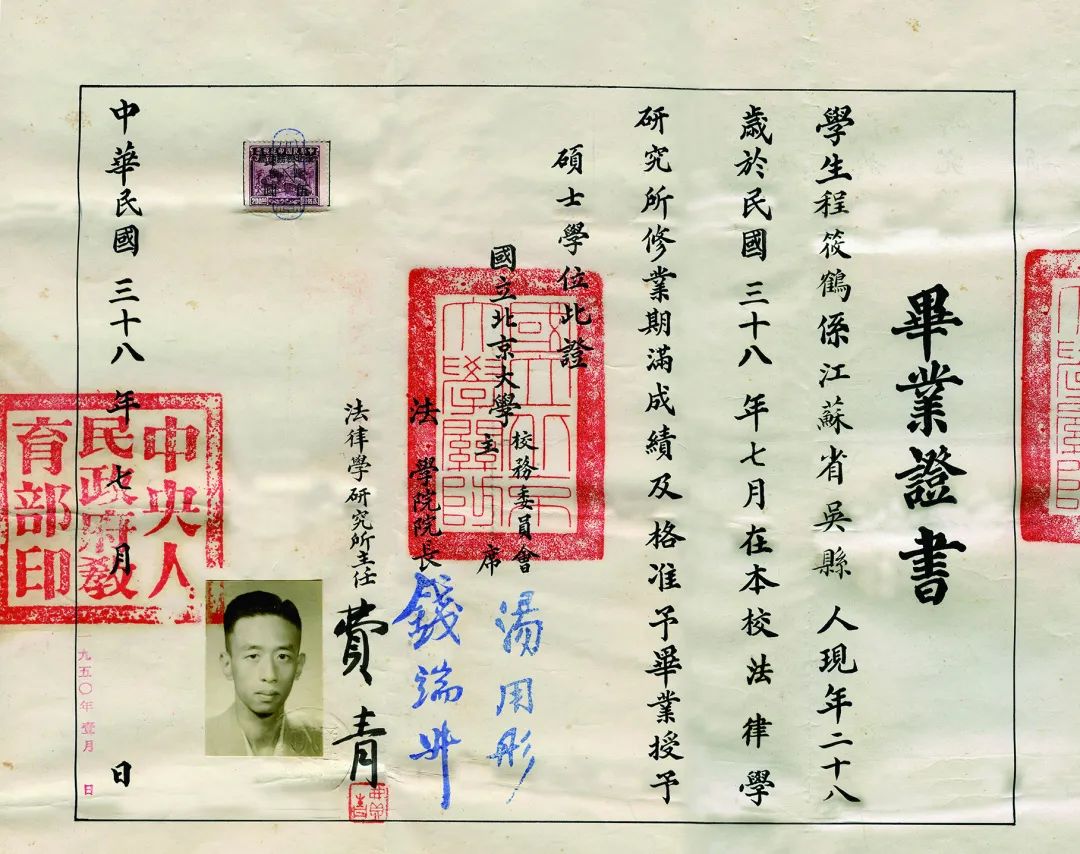 畢業證書
學生程筱鶴係江蘇省吳縣人現年二十八
歲於民國三十八年七月在本校法律學
研究所修業期滿成績及格准予畢業授予
碩士學位此證
國立北京大學校務委員會主席 湯用彤
法學院院長 錢端升
法律學研究所主任 費青
中華民國三十八年七月 日
中央人民政府教育部印
一九五〇年壹月 日